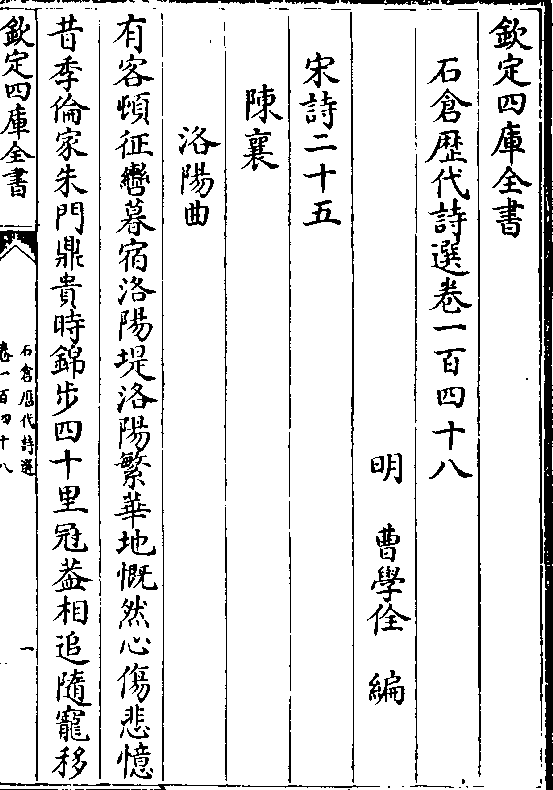 欽定四庫全書
石倉歴代詩選卷一百四十八
明 曹學佺 編
宋詩二十五
陳襄
洛陽曲
有客頓征轡暮宿洛陽堤洛陽繁華地慨然心傷悲憶
昔季倫家朱門鼎貴時錦步四十里冠葢相追隨寵移
欽定四庫全書
石倉歴代詩選
卷一百四十八
一